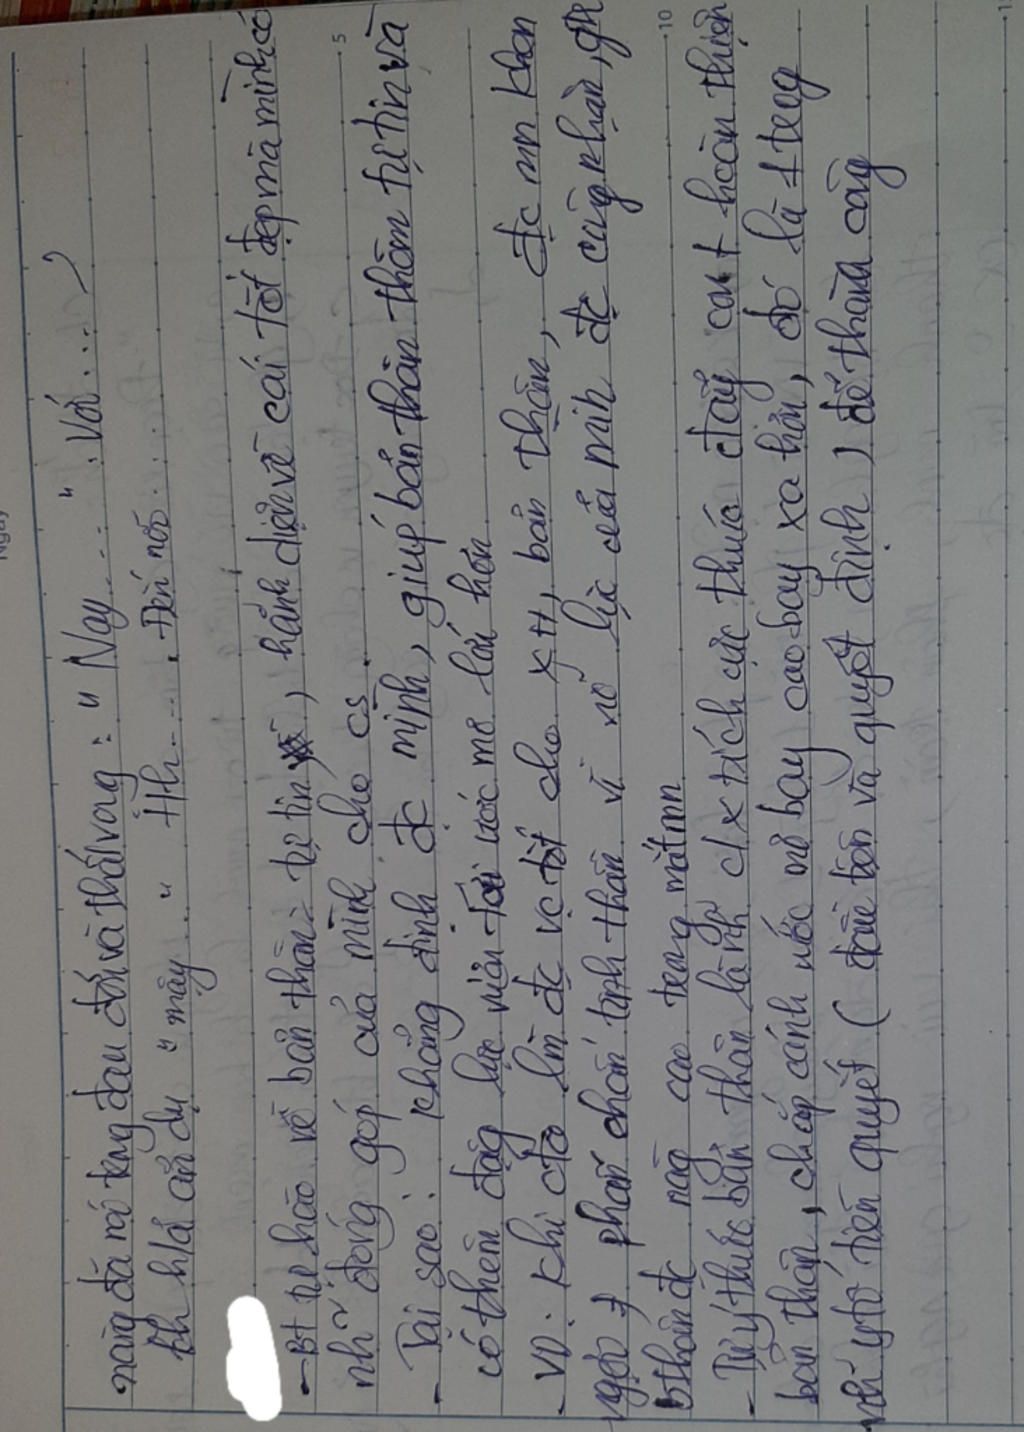 nàng đã rơi trong đau đớn và thất vọng : " Nay.... ". Với....
th hlá ẩn dụ " mây.. " Hh.... Đến nỗi....
- Bt tự hào về bản thân: tự tin, hãnh diện về cái tốt đẹp mà mình có
nh~ đóng góp của mình cho cs.
- Tại sao: khẳng định đc mình, giúp bản thân thêm tự tin và
có thêm động lực vươn tới ước mơ lớn hơn
- VD: khi cta lm đc vc tốt cho XH, bản thân, đc mn khen
ngợi phấn chấn tinh thần vì nỗ lực của mình đc công nhận,
bthân đc nâng cao trong mắt mn
- Tự ý thức bản thân là tích cực thúc đẩy con hoàn thiện
bản thân, chắp cánh ước mơ bay cao bay xa hơn, đó là 1 trong
nh~ ytố tiên quyết ( đầu tiên và quyết định ) để thành công